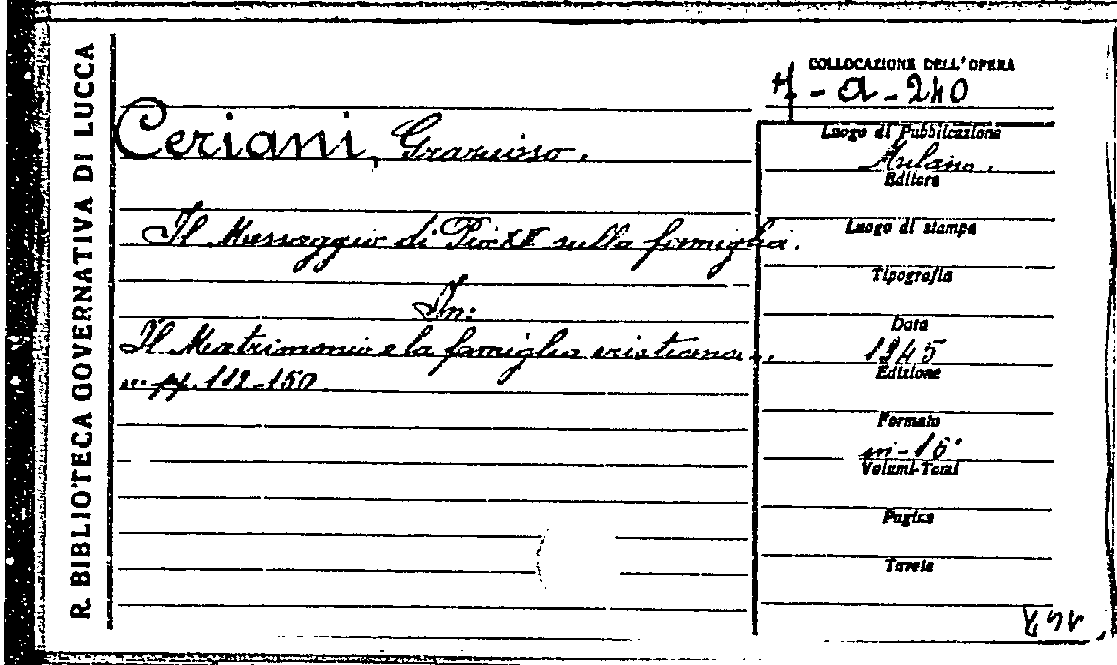 R. BIBLIOTECA GOVERNATIVA DI LUCCA
COLLOCAZIONE DELL'OPERA
7-a-240
Ceriani, Grazioso.
Luogo di Pubblicazione
Milano.
Editore
Il Messaggio di Pio XII sulla famiglia.
Luogo di stampa
Tipografia
In:
Data
Il Matrimonio e la famiglia cristiana
1945
Edizione
pp. 112-150
Formato
in-16°
Volumi-Tomi
Pagine
Tavole